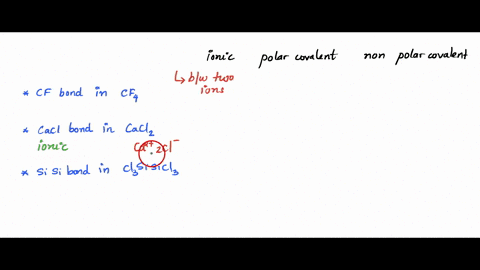 ionic polar covalent non polar covalent
↳ b/w two ions
* CF bond in CF₄
* CaCl bond in CaCl₂
ionic Ca²⁺ 2Cl⁻
* Si Si bond in Cl₃SiSiCl₃